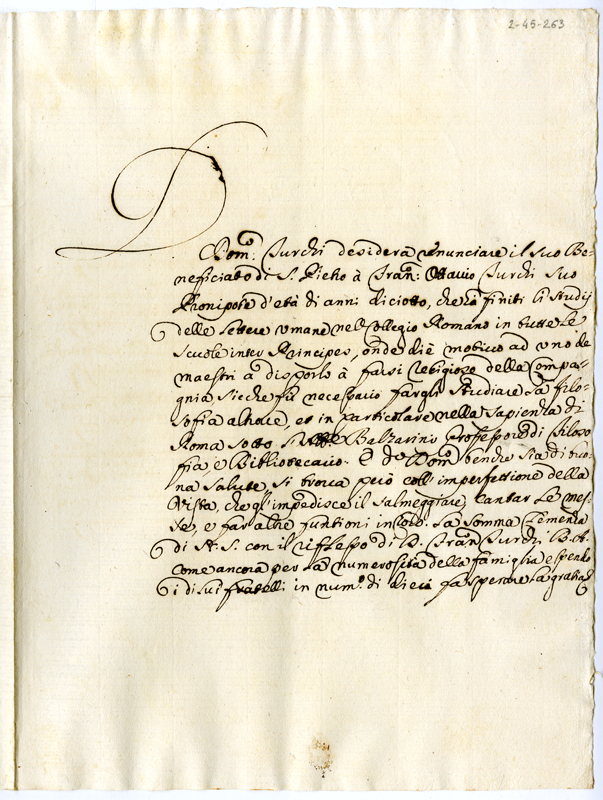 2-45-263
D
Dom.co Turchi desidera renunciare il suo Be=
neficiato di S. Pietro à Fran.co Ottavio Turchi suo
Pronipote d'età di anni diciotto, che hà finiti li studij
delle lettere umane nel Collegio Romano in tutte le
scuole inter Principes, onde diè motivo ad uno de
maestri à disporlo à farsi religioso della Compa=
gnia sicche fù necessario fargli studiare la filo=
sofia altrove, et in particolare nella Sapienza di
Roma sotto Balzarini Professore di filoso
fia e Bibliotecario. E d.o Dom.co benche sia di buo=
na salute, si trova però coll'imperfettione della
vista, che gl'impedisce il salmeggiare, cantar le mes=
se, e far altre funtioni in Coro. La somma Clemenza
di N. S. con il riflesso di Fran.co Turchi
come ancora per la numerosità della famiglia essendo
i di lui fratelli in num.o di dieci fà sperare la gratia